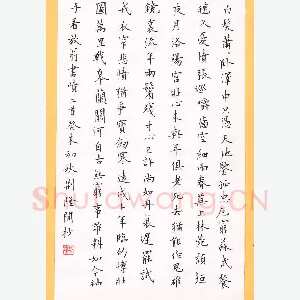 白髮蕭蕭臥澤中只憑天地鑒孤忠厄窮蘇武餐
氈久憂憤張巡嚼齒空細雨春蕪上林苑頹垣
夜月洛陽宮壯心未與年俱老死去猶能作鬼雄
鏡裏流年兩鬢殘寸心自許尚如丹衰遲罷試
戎衣窄悲憤猶爭寶劍寒遠戍十年臨的博壯
圖萬里戰皋蘭關河自古無窮事誰料如今袖
手看放翁書憤二首癸未初秋荆
Shufawang.cn